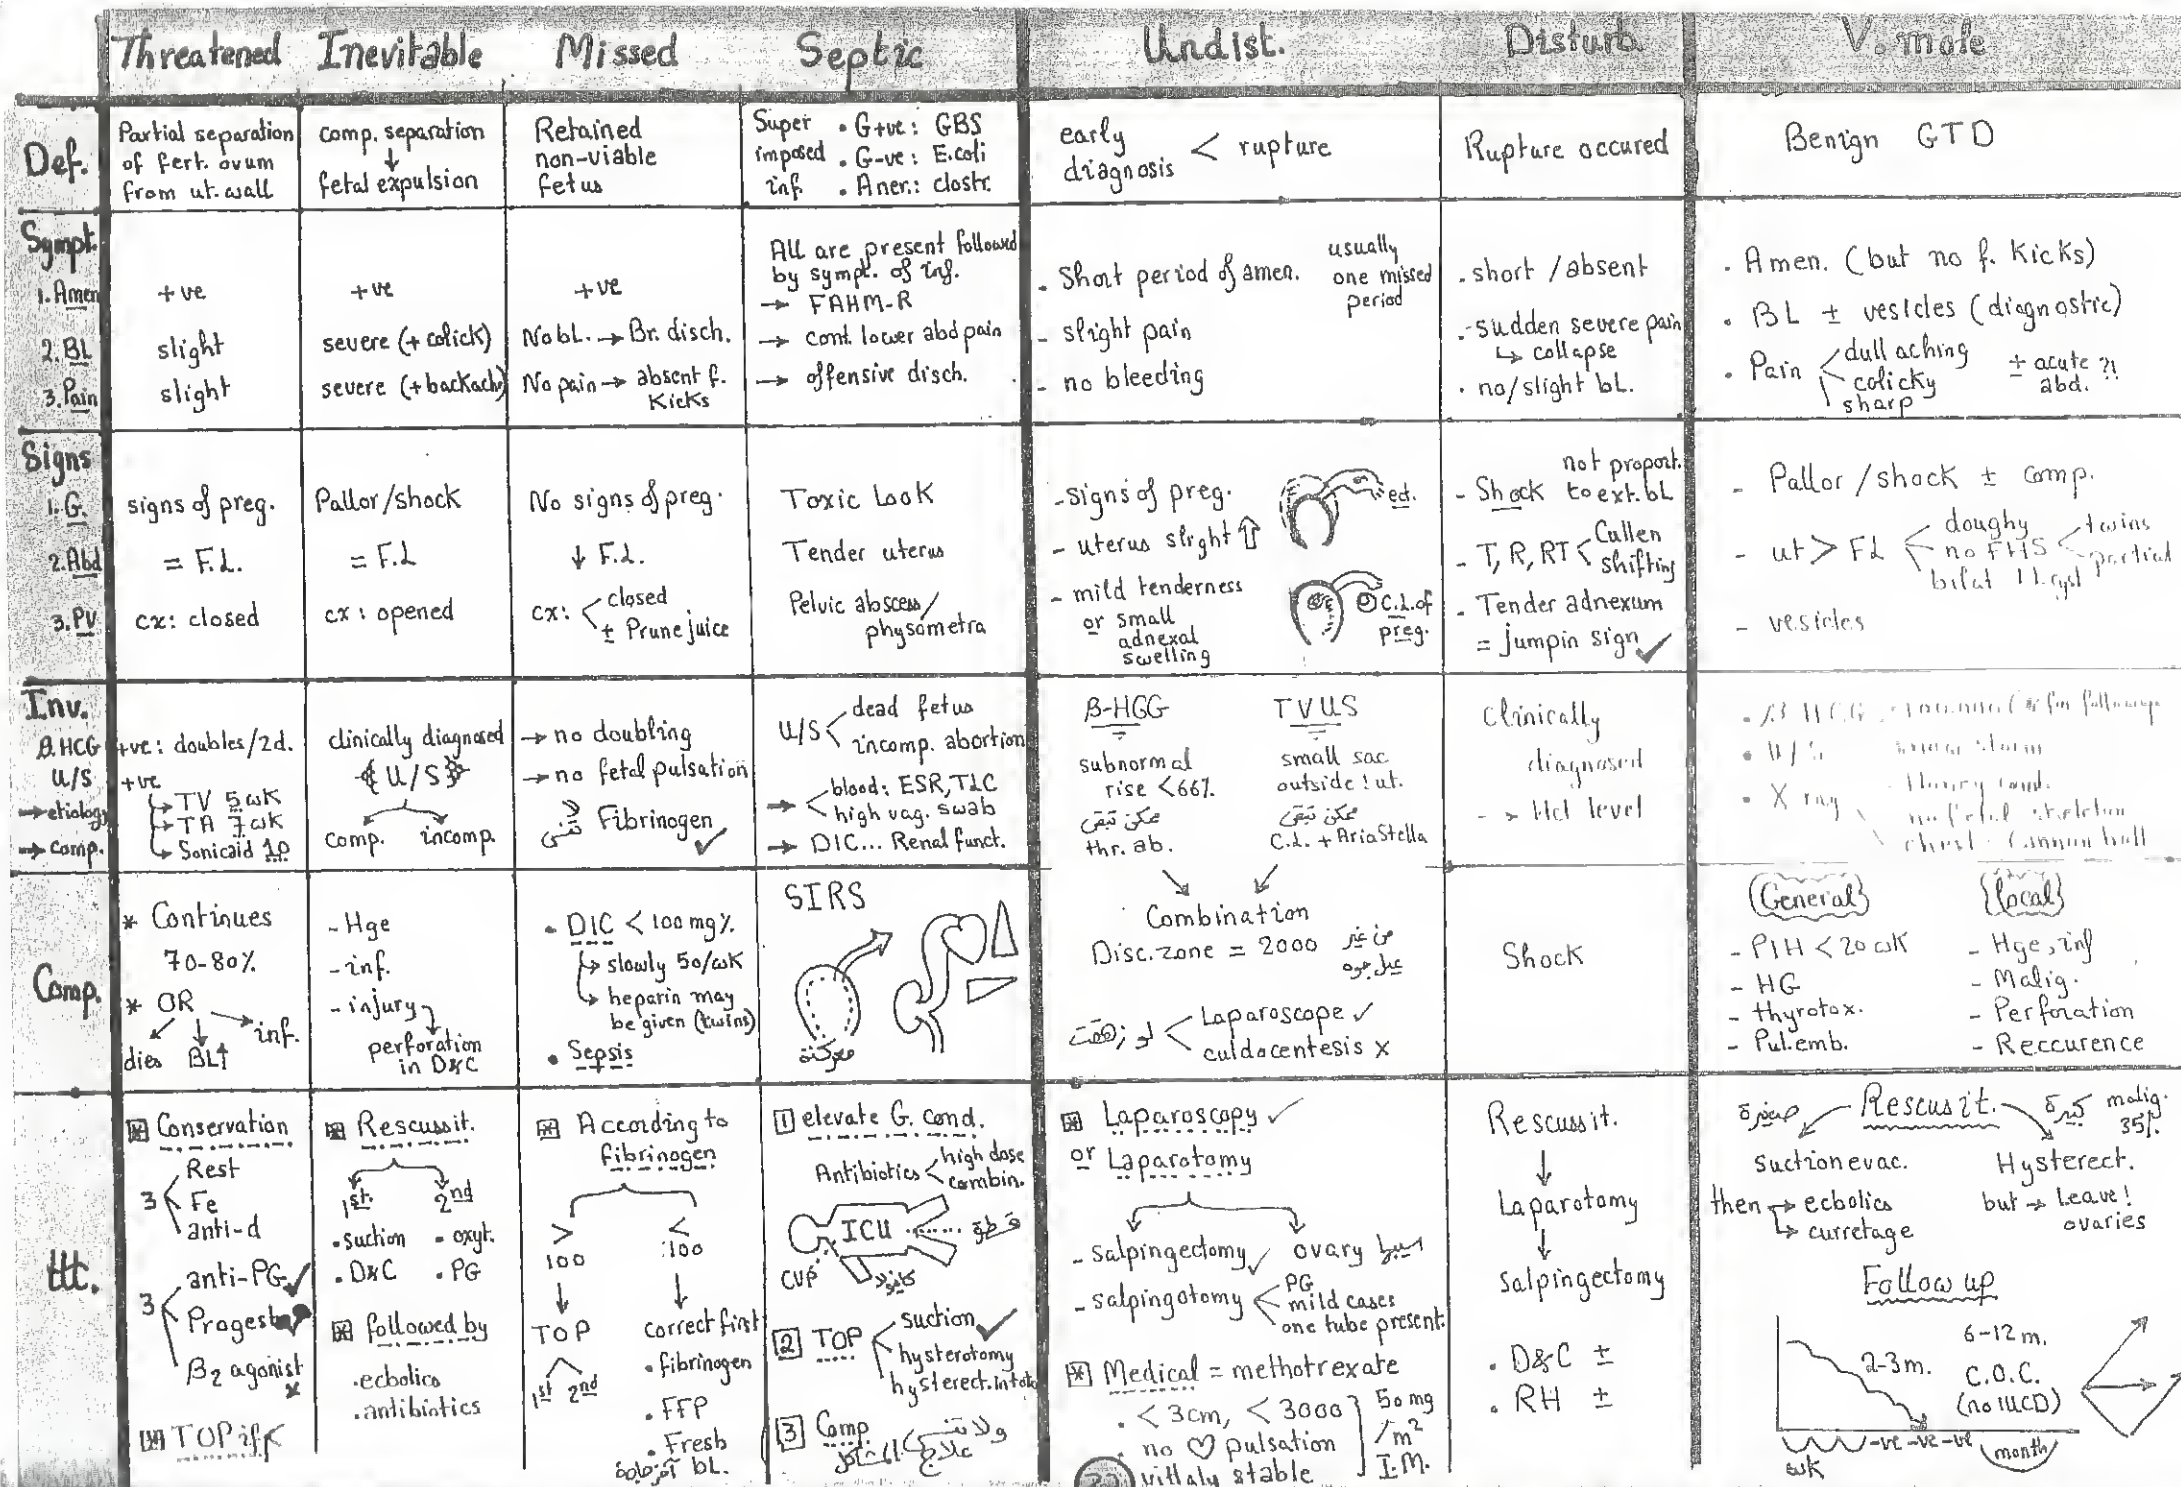 Threatened Inevitable Missed Septic Undist. Disturb. V. mole
Def.
Partial separation
of fert. ovum
from ut. wall
comp. separation
↓
fetal expulsion
Retained
non-viable
fetus
Super
imposed
inf.
• G+ve: GBS
• G-ve: E.coli
• Aner.: clostr.
early
diagnosis < rupture
Rupture occured
Benign GTD
Sympt.
1. Amen
2. BL
3. Pain
+ve
slight
slight
+ve
severe (+colick)
severe (+backach)
+ve
No bl. → Br. disch.
No pain → absent f.
Kicks
All are present followed
by sympt. of inf.
→ FAHM-R
→ cont. lower abd pain
→ offensive disch.
- Short period of amen.
usually
one missed
period
- slight pain
- no bleeding
. short / absent
. sudden severe pain
↳ collapse
. no/slight bL.
. Amen. (but no f. Kicks)
. BL ± vesicles (diagnostic)
. Pain < dull aching
colicky
sharp
± acute ?!
abd.
Signs
1. G.
2. Abd
3. PV
signs of preg.
= F.L.
cx: closed
Pallor/shock
= F.L
cx: opened
No signs of preg.
↓ F.L.
cx: < closed
± Prune juice
Toxic Look
Tender uterus
Pelvic abscess/
physometra
- signs of preg.
- uterus slight ⇧
- mild tenderness
or small
adnexal
swelling
ed.
C.L. of
preg.
- Shock not proport.
to ext. bL
- T, R, RT < Cullen
shifting
- Tender adnexum
= jumpin sign ✓
- Pallor/shock ± comp.
- ut > FL < doughy
no FHS < twins
partial
bilat 11. cyst
- vesicles
Inv.
β.HCG
U/S
→ etiology
→ comp.
+ve: doubles/2d.
+ve
↳ TV 5 wk
↳ TA 7 wk
↳ Sonicaid 10
clinically diagnosed
U/S
comp. incomp.
→ no doubling
→ no fetal pulsation
Fibrinogen ✓
U/S < dead fetus
incomp. abortion
→ < blood: ESR, TLC
high vag. swab
→ DIC... Renal funct.
β-HCG
subnormal
rise <66%
ممكن تبقى
thr. ab.
TVUS
small sac
outside ! ut.
ممكن تبقى
C.L. + AriaStella
Combination
Disc. zone = 2000 من غير
Clinically
diagnosed
-> Hct level
. β HCG for followup
. U/S storm
. X ray
no fetal skeleton
chest: Cannon ball
Comp.
* Continues
70-80%
* OR
dies BL↑ inf.
- Hge
- inf.
- injury
perforation
in D&C
. DIC < 100 mg%
↳ slowly 50/wk
↳ heparin may
be given (twins)
. Sepsis
SIRS
معركة
< Laparoscope ✓
culdocentesis x
Shock
General
- PIH < 20 wk
- HG
- thyrotox.
- Pul. emb.
local
- Hge, inf
- Malig.
- Perforation
- Reccurence
ttt.
Conservation
3 < Rest
Fe
anti-d
3 < anti-PG ✓
Progest
β2 agonist x
TOP iff
Rescussit.
1st. 2nd
. suction . oxyt.
. D&C . PG
followed by
. ecbolics
. antibiotics
According to
fibrinogen
> <
100 100
↓ ↓
TOP correct first
1st 2nd
. fibrinogen
. FFP
. Fresh
bL.
1 elevate G. cond.
Antibiotics < high dose
combin.
ICU
قسطرة
CVP
كانيولا
2 TOP < suction ✓
hysterotomy
hysterect. in toto
3 Comp
ولا تنسى
علاج المشاكل
Laparoscopy ✓
or Laparotomy
- salpingectomy ✓ ovary
- salpingotomy < PG
mild cases
one tube present.
Medical = methotrexate
. < 3cm, < 3000
. no ♡ pulsation
vittaly stable
50 mg
/m²
I.M.
Rescussit.
↓
Laparotomy
↓
Salpingectomy
. D&C ±
. RH ±
صغيرة Rescusit. كبيرة malig.
35%
Suction evac. Hysterect.
then → ecbolics
↳ curretage
but → Leave !
ovaries
Follow up
6-12 m.
2-3 m. C.O.C.
(no IUCD)
-ve -ve -ve
wk month